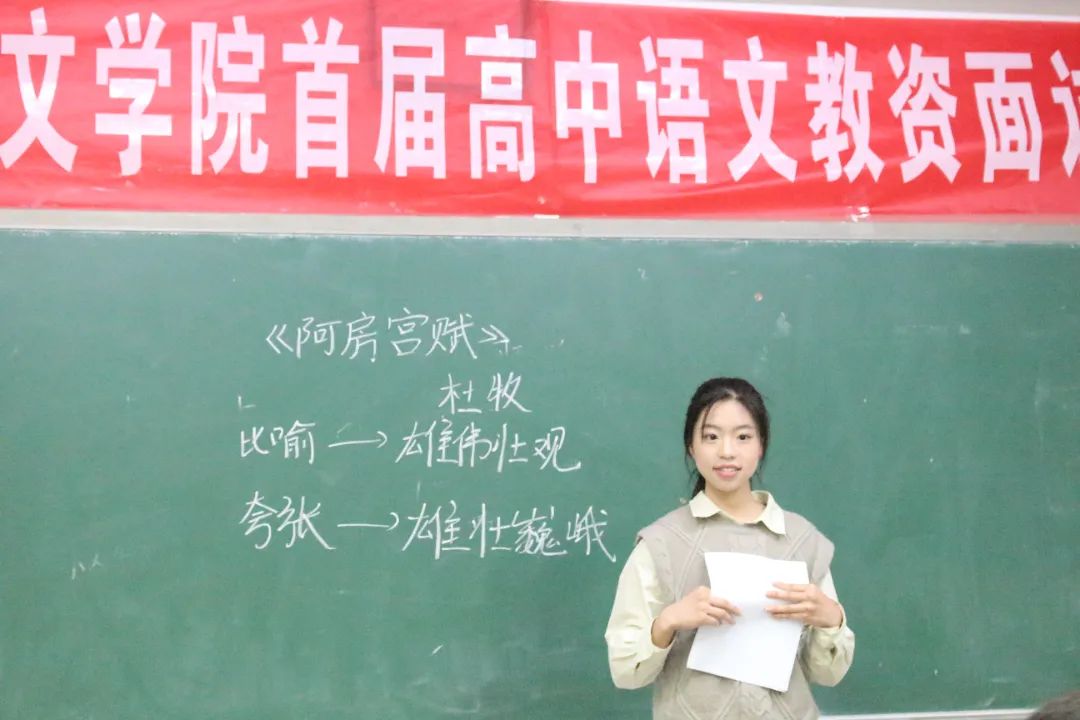 文学院首届高中语文教资面试
《阿房宫赋》
杜牧
比喻→雄伟壮观
夸张→雄壮巍峨